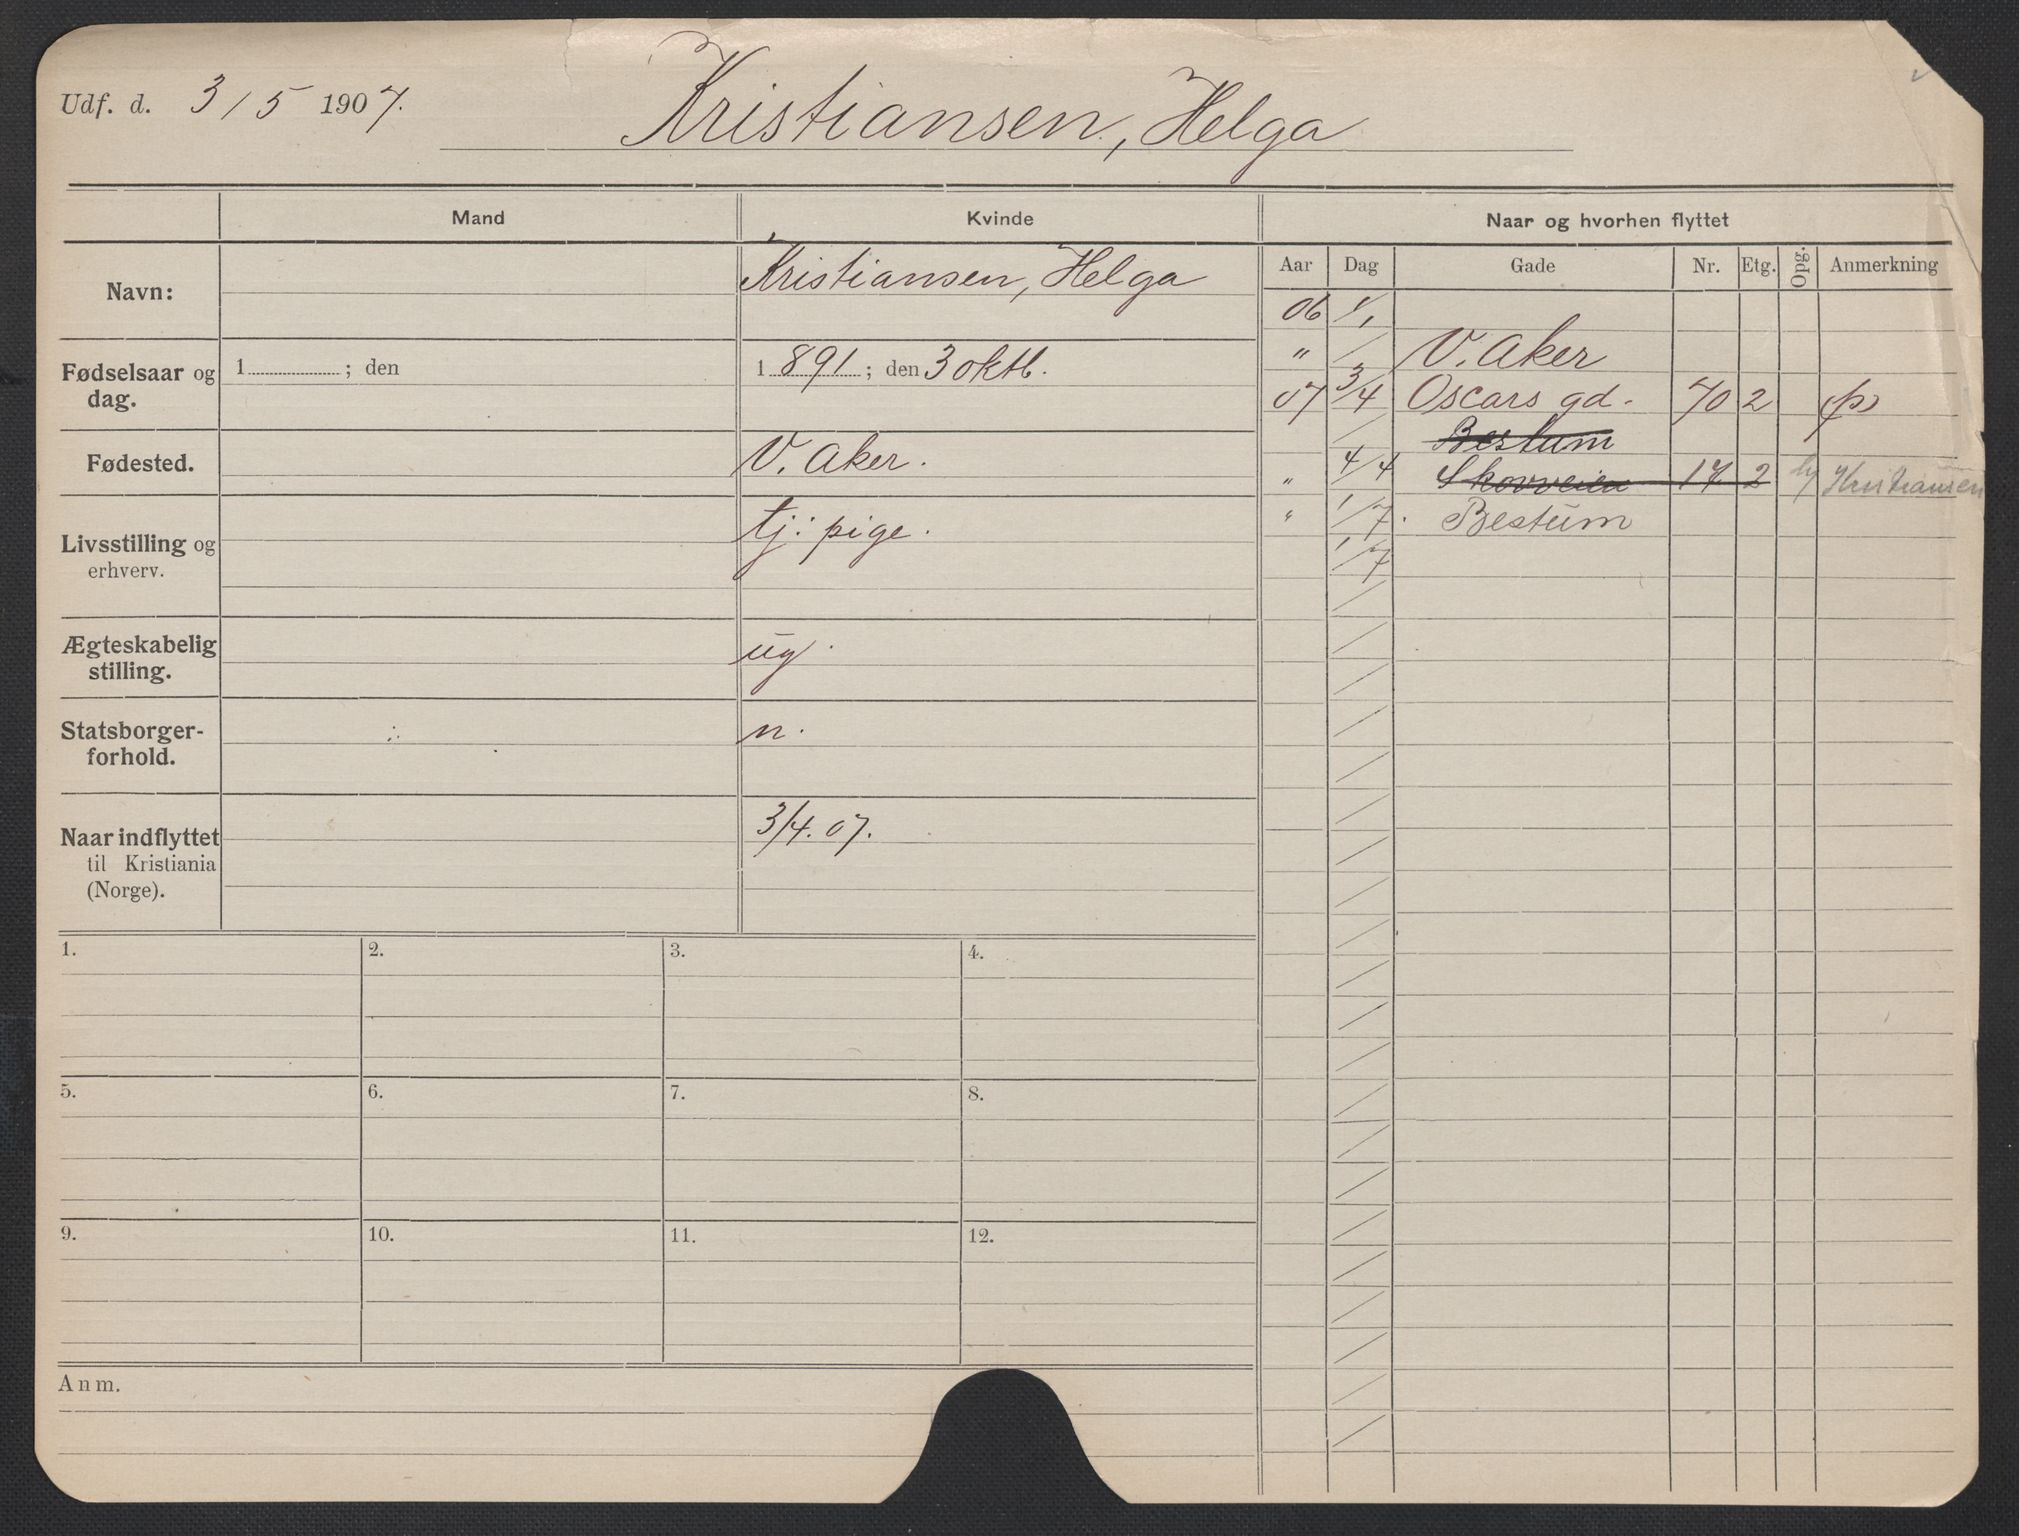 Udf. d. 3/5 1907.
Kristiansen, Helga
Mand Kvinde Naar og hvorhen flyttet
Aar Dag Gade Nr. Etg. Opg. Anmerkning
Navn: Kristiansen, Helga
Fødselsaar og dag. 1 ; den 1891 ; den 3 oktb.
Fødested. V. Aker.
Livsstilling og erhverv. tj: pige.
Ægteskabelig stilling. ug.
Statsborger-forhold. n.
Naar indflyttet til Kristiania (Norge). 3/4.07.
06 1/1
" / V. Aker
07 3/4 Oscars gd. 70 2 (p)
/ Bestum
" 4/4 Skovveien 17 2 Kristiansen
" 1/7. Bestum
1/7
1. 2. 3. 4.
5. 6. 7. 8.
9. 10. 11. 12.
Anm.